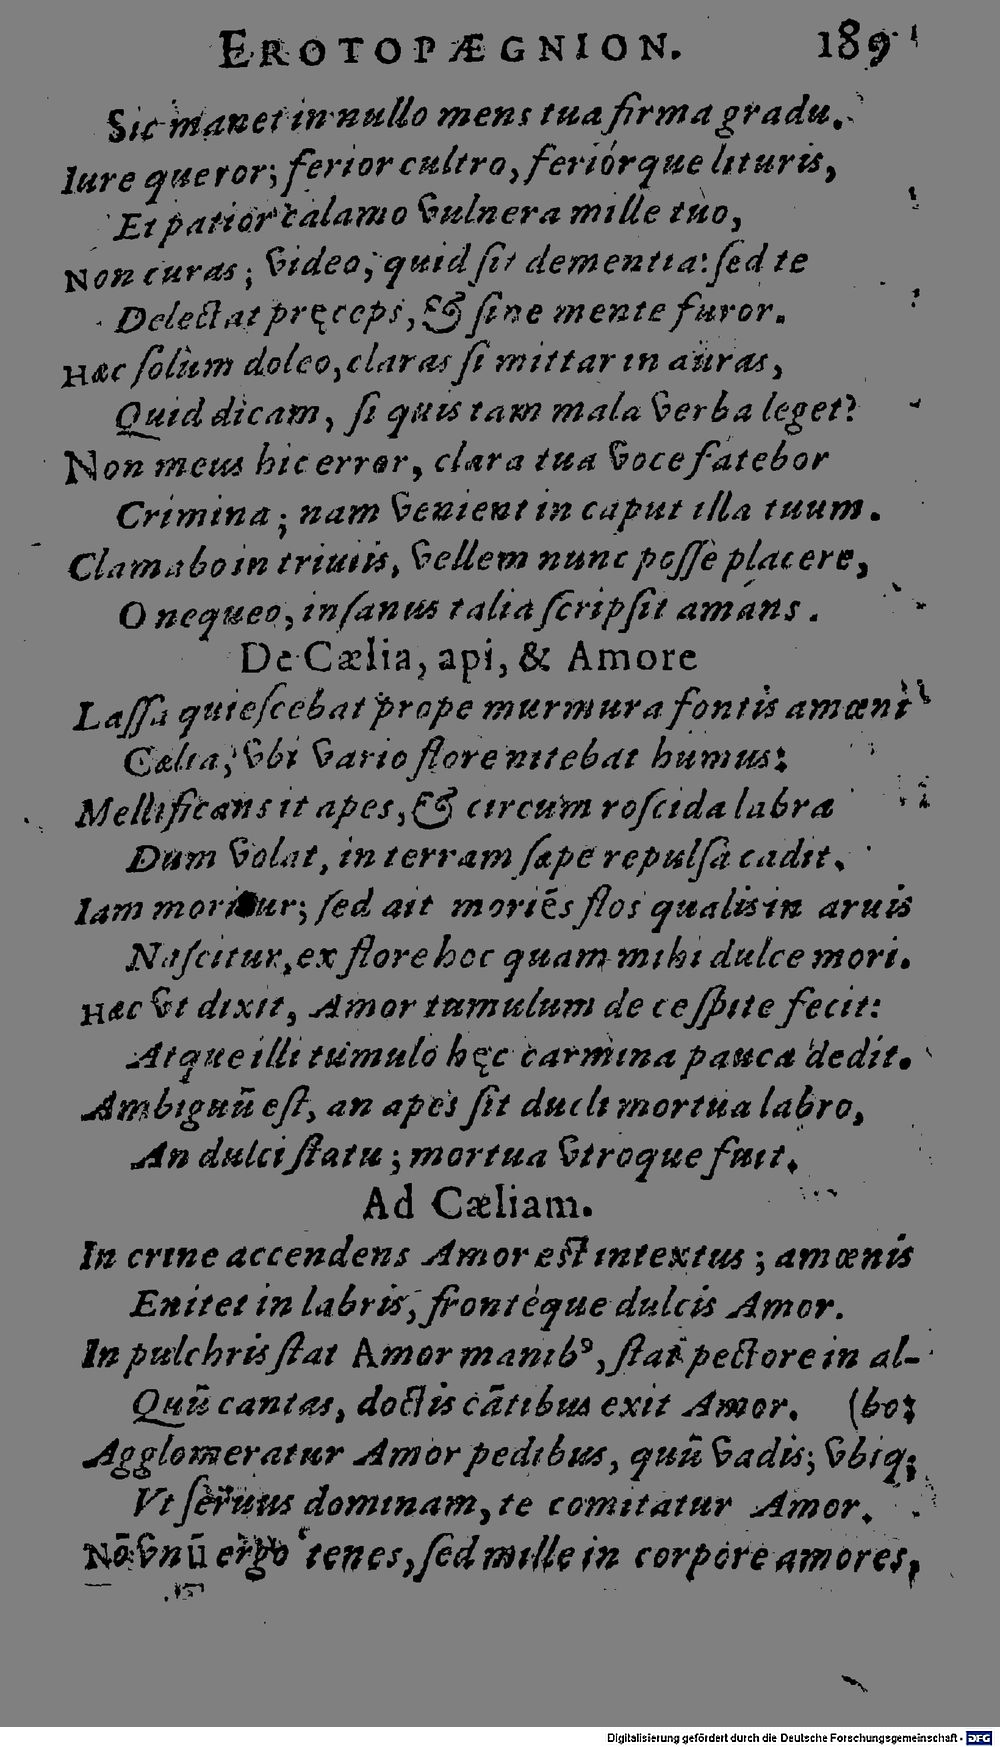 EROTOPÆGNION. 189
Sic manet in nullo mens tua firma gradu.
Iure queror; ferior cultro, feriórque lituris,
Et patior calamo vulnera mille tuo,
Non curas; video, quid ſit dementia: ſed te
Delectat pręceps, & ſine mente furor.
Hæc ſolùm doleo, claras ſi mittar in auras,
Quid dicam, ſi quis tam mala verba leget?
Non meus hic error, clara tua voce fatebor
Crimina; nam venient in caput illa tuum.
Clamabo in triuiis, vellem nunc poſſe placere,
O nequeo, inſanus talia ſcripſit amans.
De Cælia, api, & Amore
Laſſa quieſcebat prope murmura fontis amœni
Cælia, vbi vario flore nitebat humus:
Mellificans it apes, & circum roſcida labra
Dum volat, in terram ſæpe repulſa cadit.
Iam moritur; ſed ait moriẽs flos qualis in aruis
Naſcitur, ex flore hoc quam mihi dulce mori.
Hæc vt dixit, Amor tumulum de ceſpite fecit:
Atque illi tumulo hęc carmina pauca dedit.
Ambiguũ eſt, an apes ſit ducli mortua labro,
An dulci ſtatu; mortua vtroque fuit.
Ad Cæliam.
In crine accendens Amor eſt intextus; amœnis
Enitet in labris, frontéque dulcis Amor.
In pulchris ſtat Amor manibꝰ, ſtat pectore in al-
Quũ cantas, doctis cãtibus exit Amor. (bo;
Agglomeratur Amor pedibus, quũ vadis; vbiq;
Vt ſeruus dominam, te comitatur Amor.
Nõ vnũ ergo tenes, ſed mille in corpore amores,
Digitalisierung gefördert durch die Deutsche Forschungsgemeinschaft - DFG